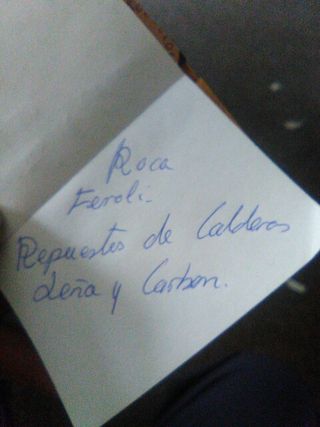 Roca
Feroli
Repuestos de Calderas
Leña y Carbon.